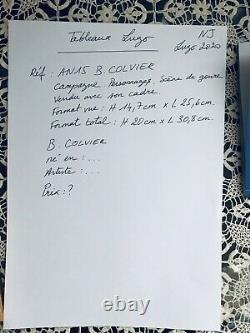 Tableaux Luzo
NJ
Luzo 2020
Réf : AN15 B. COLVIER
Campagne Personnages Scène de genre
Vendu avec son cadre.
Format vue : H 14,7cm x L 25,6cm.
Format total : H 20cm x L 30,8cm.
B. COLVIER
né en : ...
Artiste : ...
Prix : ?